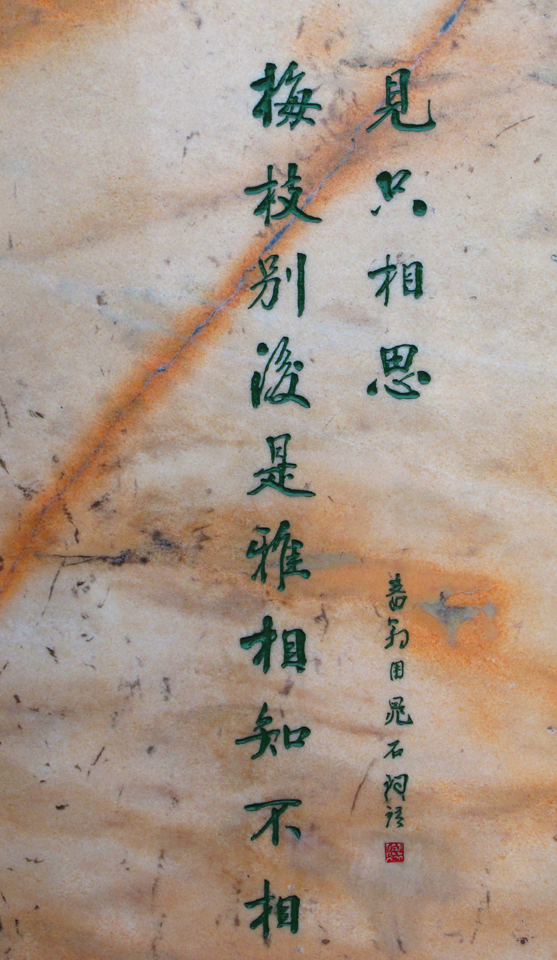 梅枝別後是雅相知不相
見只相思
嗇翁用晁石詞語